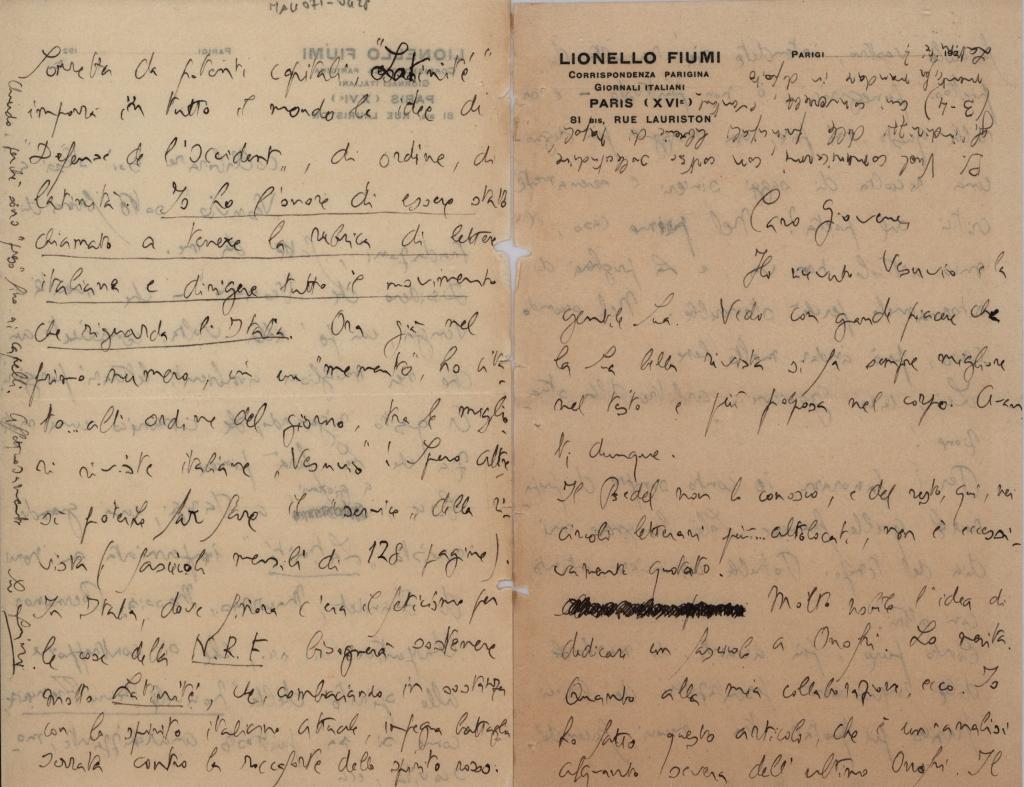 MAU 071-
Sorretta da potenti capitali, "Latinité"
imporrà in tutto il mondo le idee di
"Défense de l'Occident", di ordine, di
latinità. Io ho l'onore di essere stato
chiamato a tenere la rubrica di lettere
italiane e dirigere tutto il movimento
che riguarda l'Italia. Ora già nel
primo numero, in un "memento", ho cita-
to... all'ordine del giorno, tra le miglio
ri riviste italiane "Vesuvio"! Spero altre
sì poterLe far fare il "service" della ri-
vista (fascicoli mensili di 128 pagine).
In Italia, dove finora c'era il feticismo per
le cose della N.R.F. bisognerà sostenere
molto Latinité, che combaciando in sostanza
con lo spirito italiano attuale, impegna battaglia
serrata contro la roccaforte dello spirito rosso.
Chiudo, perché sono "preso" fino ai capelli. Affettuosamente
LIONELLO FIUMI
CORRISPONDENZA PARIGINA
GIORNALI ITALIANI
PARIS (XVIe)
81 BIS, RUE LAURISTON
PARIGI 192
P.S. Vuol comunicarmi, con cortese sollecitudine
gli indirizzi delle principali librerie di Napoli
(3-4)
Caro Giovene,
Ho ricevuto Vesuvio e la
gentile Sua. Vedo con grande piacere che
la Sua bella rivista si fa sempre migliore
nel testo e più polposa nel corpo. Avan
ti, dunque.
Il Bedel non lo conosco, e del resto, qui, nei
circoli letterari più... altolocati, non è eccessi-
vamente quotato.
Molto nobile l'idea di
dedicare un fascicolo a Onofri. Lo merita.
Quanto alla mia collaborazione, ecco. Io
ho fatto questo articolo, che è un'analisi
alquanto severa dell'ultimo Onofri. Il